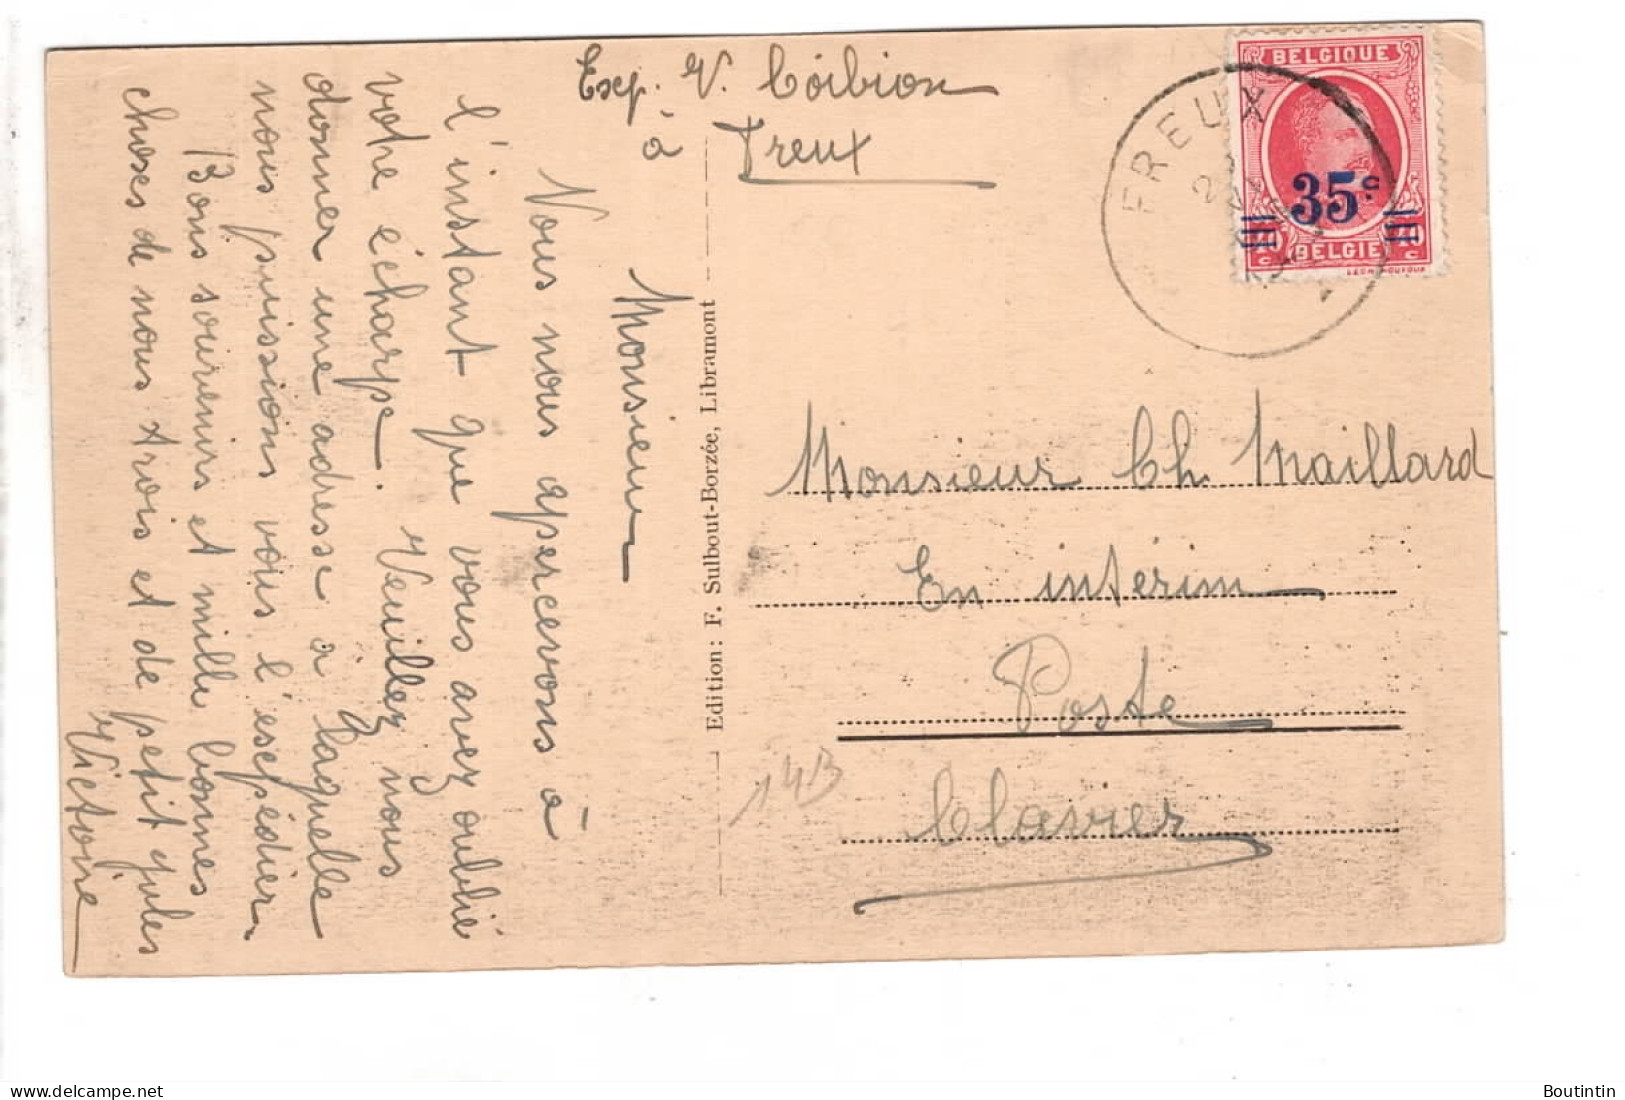 Exp. V. Coibion
à Freux
Monsieur
Vous nous apercevons à
l'instant que vous avez oublié
votre écharpe. Veuillez nous
donner une adresse à laquelle
nous puissions vous l'expédier
Bons souvenirs et mille bonnes
choses de nous trois et de petit Jules
Victorie
Edition : F. Sulbout-Borzée, Libramont
BELGIQUE
35c
BELGIE
FREUX
Monsieur Ch. Maillard
En intérim
Poste
Clavier
143
delcampe.net
Boutintin